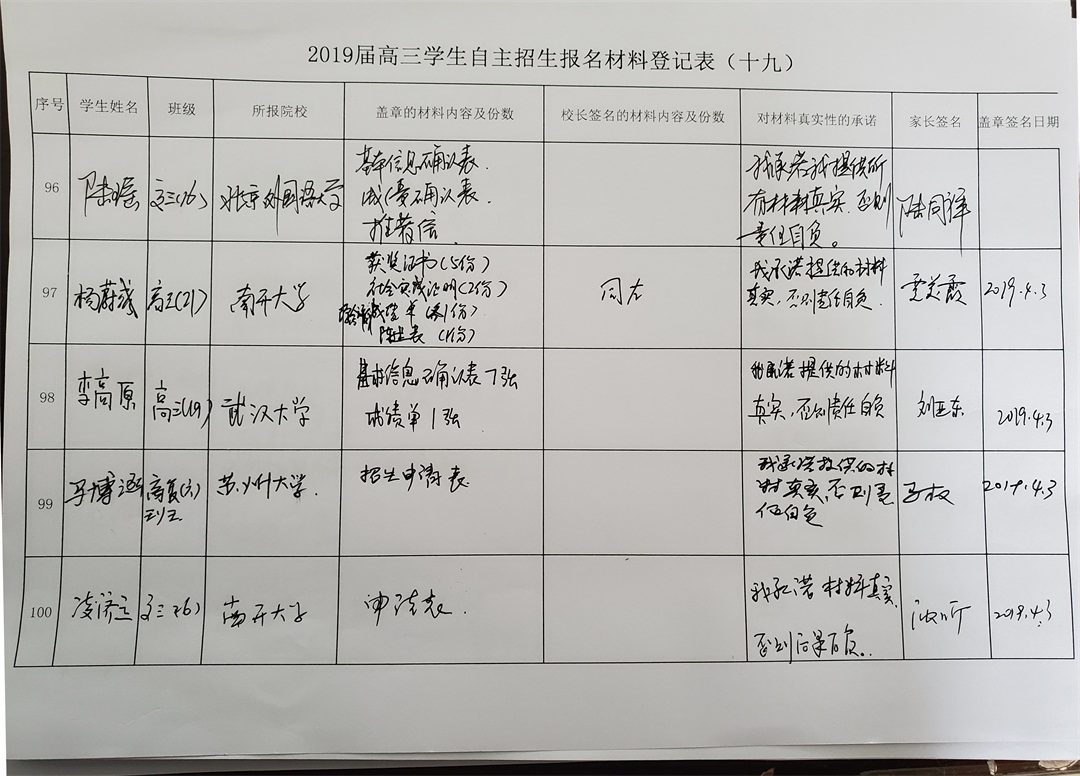 2019届高三学生自主招生报名材料登记表（十九）
序号 学生姓名 班级 所报院校 盖章的材料内容及份数 校长签名的材料内容及份数 对材料真实性的承诺 家长签名 盖章签名日期
96 陆瑶 高三(16) 北京外国语大学
基本信息确认表.
成绩确认表.
推荐信.
我承诺我提供所
有材料真实.否则
责任自负。
陆同祥
97 杨蔚 高三(21) 南开大学
获奖证书(5份)
社会实践证明(2份)
成绩单 (1份)
陈述表 (1份)
同左
我承诺提供的材料
真实,否则责任自负.
2019.4.3
98 李高原 高三(19) 武汉大学
基本信息确认表 1张
成绩单 1张
我承诺提供的材料
真实,否则责任自负
刘亚东 2019.4.3
99 马博涵 苏州大学.
招生申请表.
我承诺提供的材
料真实,否则责
任自负
2019.4.3
100 凌济立 高三(6) 南开大学
申请表.
我承诺材料真实,
否则后果自负。
2019.4.3